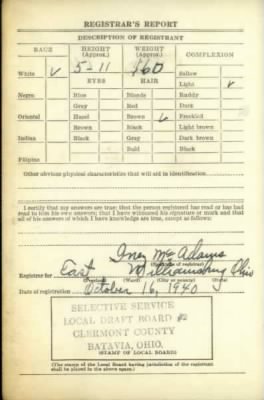 REGISTRAR'S REPORT
DESCRIPTION OF REGISTRANT
RACE HEIGHT (Approx.) WEIGHT (Approx.) COMPLEXION
White ✓ 5-11 160 Sallow
EYES HAIR Light ✓
Negro Blue Blonde Ruddy
Gray Red Dark
Oriental Hazel Brown ✓ Freckled
Brown Black Light brown
Indian Black Gray Dark brown
Bald Black
Filipino
Other obvious physical characteristics that will aid in identification
I certify that my answers are true; that the person registered has read or has had
read to him his own answers; that I have witnessed his signature or mark and that
all of his answers of which I have knowledge are true, except as follows:
Inez McAdams
(Signature of registrar)
Registrar for East Williamsburg Ohio
(Precinct) (Ward) (City or county) (State)
Date of registration October 16, 1940
SELECTIVE SERVICE
LOCAL DRAFT BOARD #2
CLERMONT COUNTY
BATAVIA, OHIO.
(STAMP OF LOCAL BOARD)
(The stamp of the Local Board having jurisdiction of the registrant
shall be placed in the above space.)